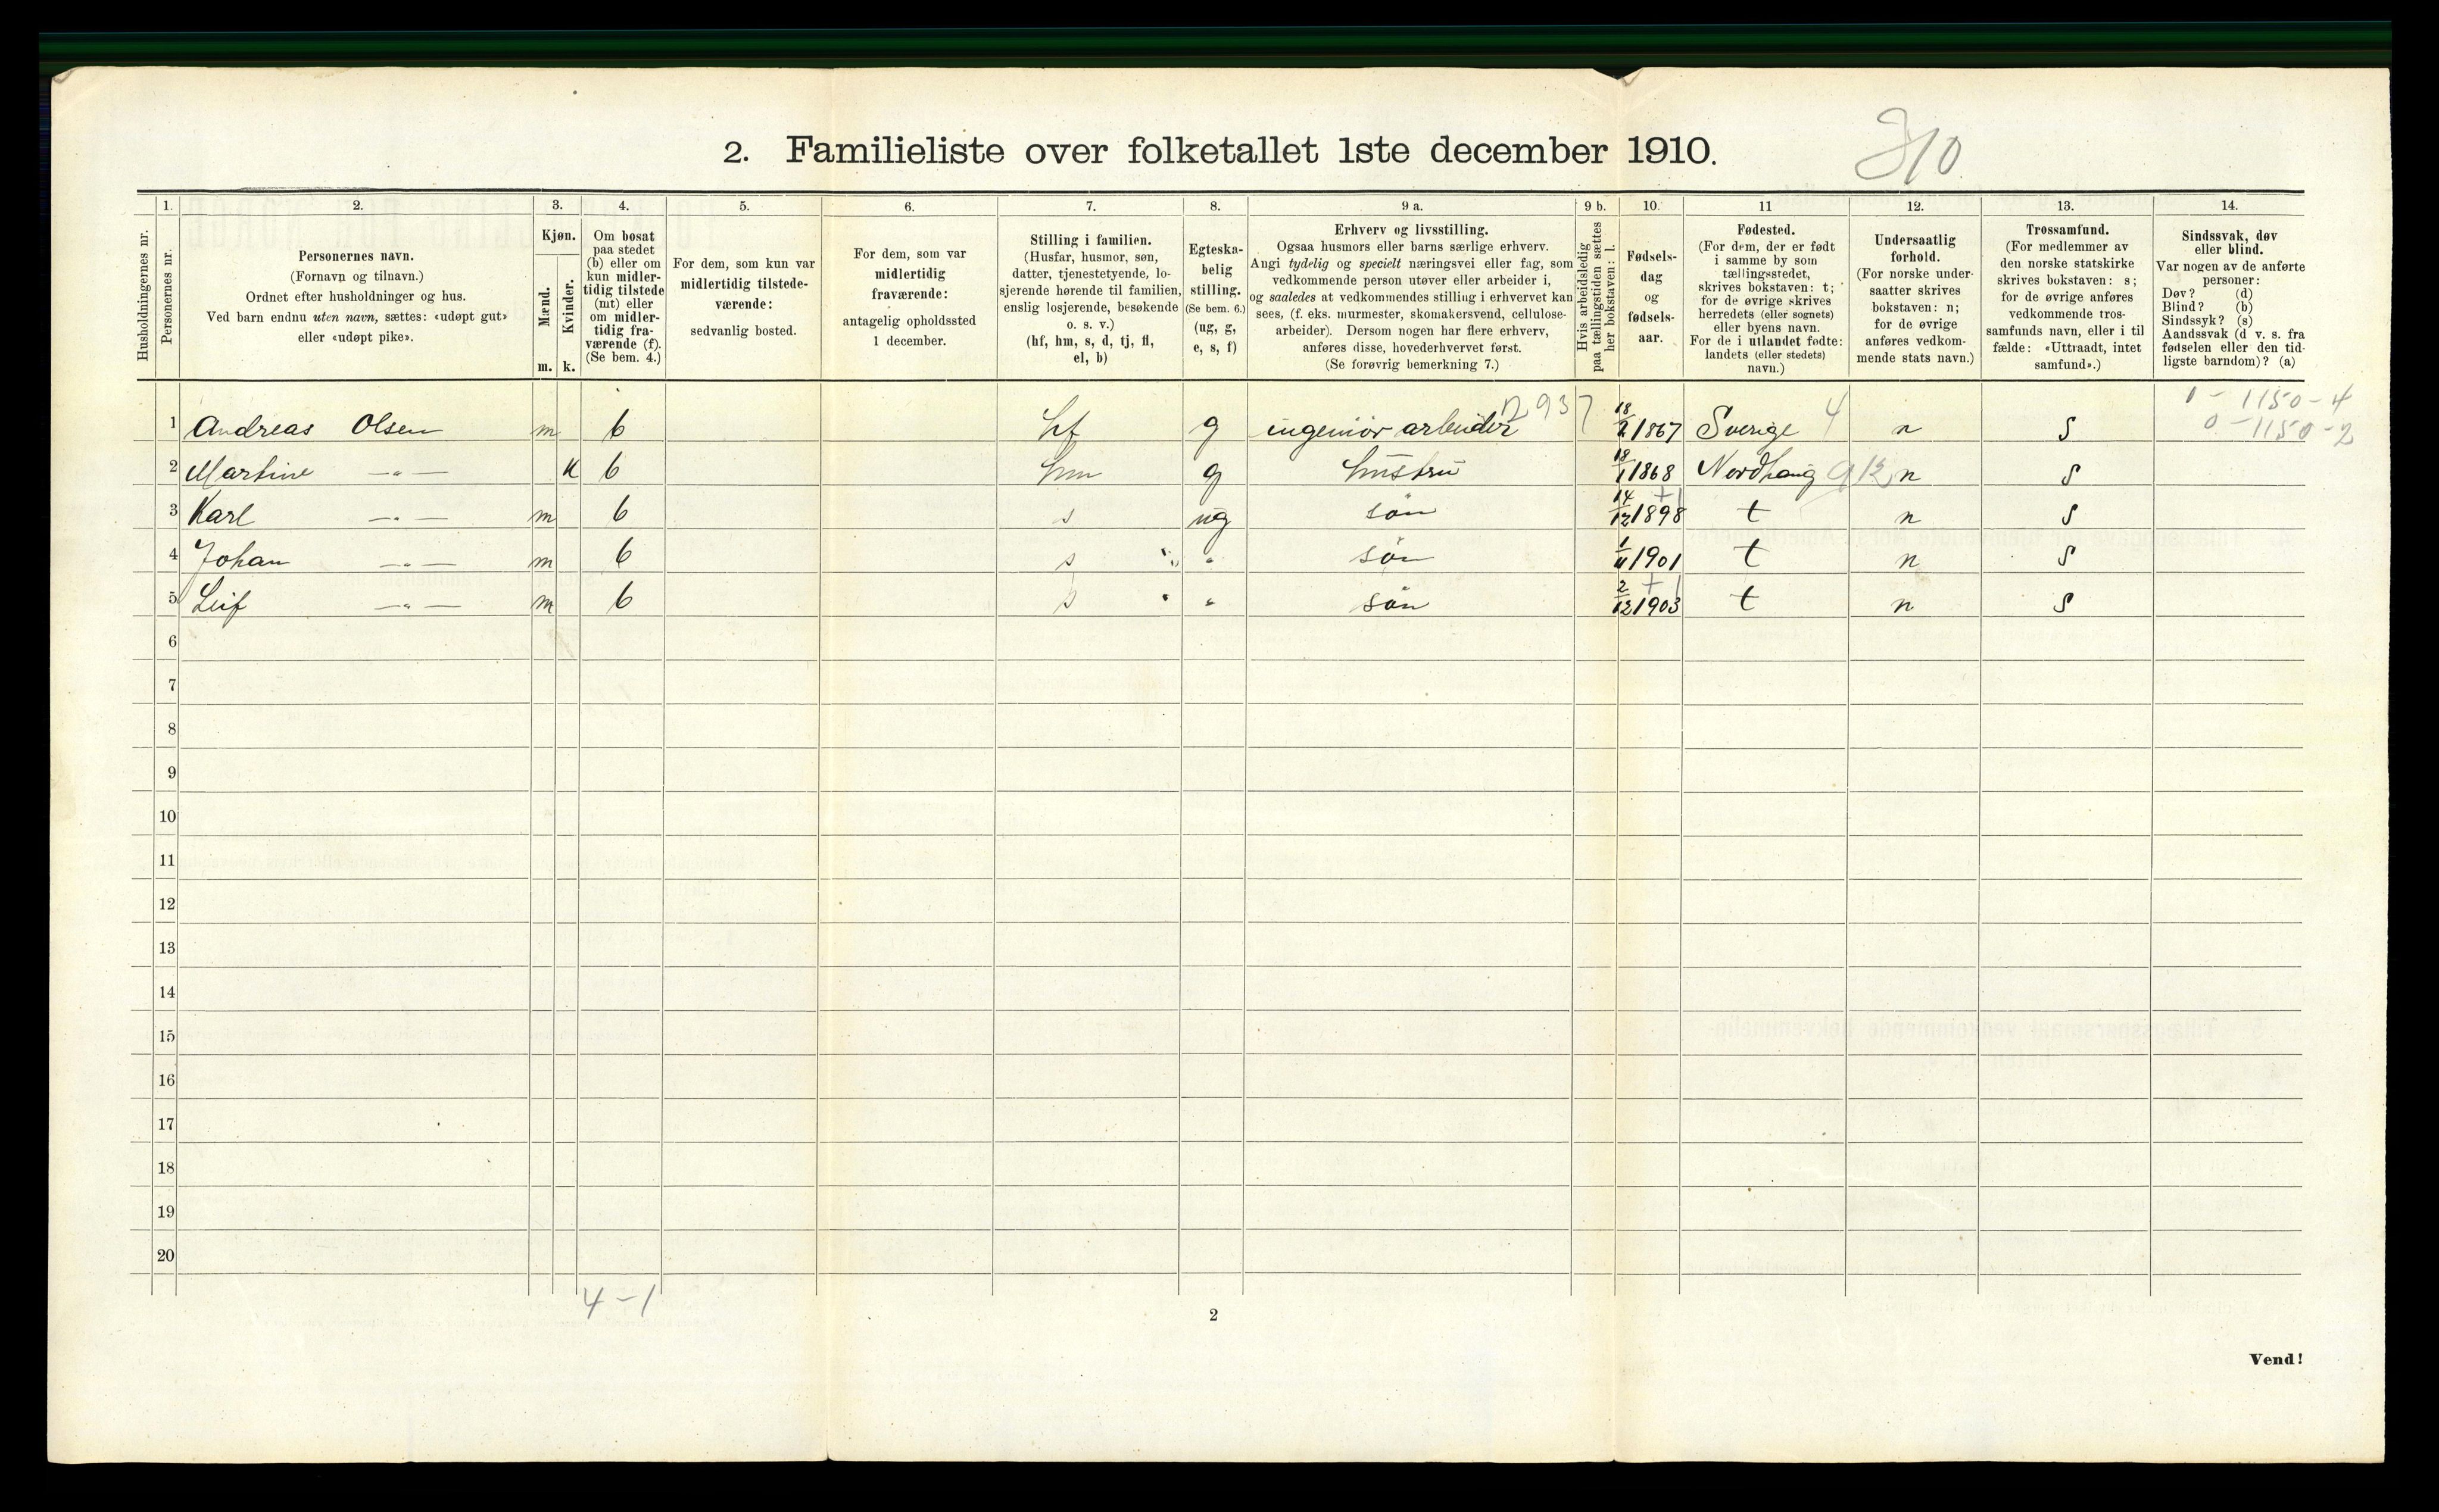 2. Familieliste over folketallet 1ste december 1910.
310
1. 2. 3. 4. 5. 6. 7. 8. 9 a. 9 b. 10. 11 12. 13. 14.
Husholdningernes nr.
Personernes nr.
Personernes navn.
(Fornavn og tilnavn.)
Ordnet efter husholdninger og hus.
Ved barn endnu uten navn, sættes: «udøpt gut»
eller «udøpt pike».
Kjøn.
Mænd.
Kvinder.
m. k.
Om bosat
paa stedet
(b) eller om
kun midler-
tidig tilstede
(mt) eller
om midler-
tidig fra-
værende (f).
(Se bem. 4.)
For dem, som kun var
midlertidig tilstede-
værende:
sedvanlig bosted.
For dem, som var
midlertidig
fraværende:
antagelig opholdssted
1 december.
Stilling i familien.
(Husfar, husmor, søn,
datter, tjenestetyende, lo-
sjerende hørende til familien,
enslig losjerende, besøkende
o. s. v.)
(hf, hm, s, d, tj, fl,
el, b)
Egteska-
belig
stilling.
(Se bem. 6.)
(ug, g,
e, s, f)
Erhverv og livsstilling.
Ogsaa husmors eller barns særlige erhverv.
Angi tydelig og specielt næringsvei eller fag, som
vedkommende person utøver eller arbeider i,
og saaledes at vedkommendes stilling i erhvervet kan
sees, (f. eks. murmester, skomakersvend, cellulose-
arbeider). Dersom nogen har flere erhverv,
anføres disse, hovederhvervet først.
(Se forøvrig bemerkning 7.)
Hvis arbeidsledig
paa tællingstiden sættes
her bokstaven: l.
Fødsels-
dag
og
fødsels-
aar.
Fødested.
(For dem, der er født
i samme by som
tællingsstedet,
skrives bokstaven: t;
for de øvrige skrives
herredets (eller sognets)
eller byens navn.
For de i utlandet fødte:
landets (eller stedets)
navn.)
Undersaatlig
forhold.
(For norske under-
saatter skrives
bokstaven: n;
for de øvrige
anføres vedkom-
mende stats navn.)
Trossamfund.
(For medlemmer av
den norske statskirke
skrives bokstaven: s;
for de øvrige anføres
vedkommende tros-
samfunds navn, eller i til
fælde: «Uttraadt, intet
samfund».)
Sindssvak, døv
eller blind.
Var nogen av de anførte
personer:
Døv? (d)
Blind? (b)
Sindssyk? (s)
Aandssvak (d. v. s. fra
fødselen eller den tid-
ligste barndom)? (a)
0 - 1150 - 4
0 - 1150 - 2
1 Andreas Olsen m b hf g ingeniör arbeider 2937 18/2 1867 Sverige 4 n S
2 Martine —"— K b hm g hustru 18/1 1868 Nordhaug 912 n S
3 Karl —"— m b s ug sön 14/12 1898 +1 t n S
4 Johan —"— m b s " sön 1/11 1901 t n S
5 Leif —"— m b s " sön 2/12 1903 +1 t n S
6
7
8
9
10
11
12
13
14
15
16
17
18
19
20
4 - 1
2
Vend!